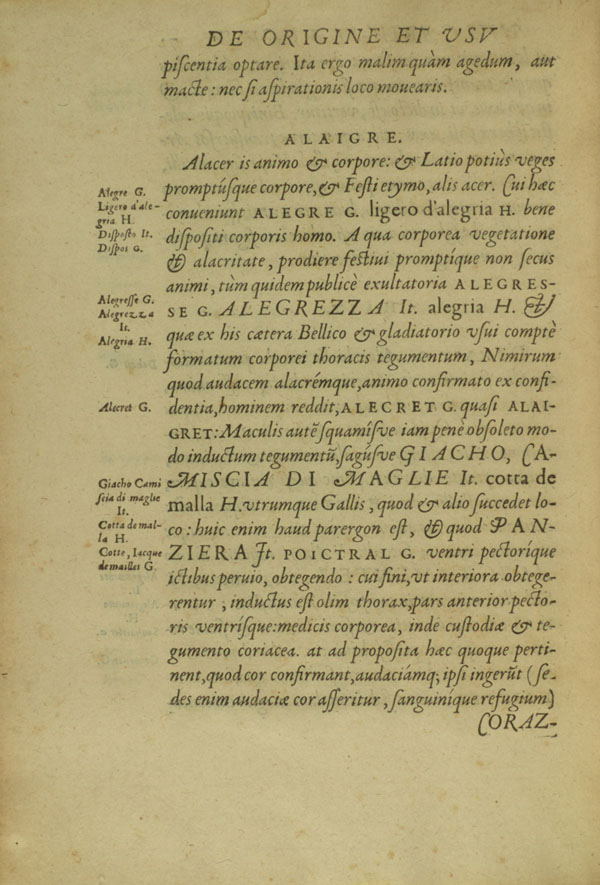 DE ORIGINE ET VSV
piſcentia optare. Ita ergo malim quàm agedum, aut
macte: nec ſi aſpirationis loco mouearis.
ALAIGRE.
Alacer is animo & corpore: & Latio potiùs veges
promptúſque corpore, & Feſti etymo, alis acer. Cui hæc
conueniunt ALEGRE G. ligero d'alegria H. bene
diſpoſiti corporis homo. A qua corporea vegetatione
& alacritate, prodiere feſtiui promptique non ſecus
animi, tùm quidem publicè exultatoria ALEGRES-
SE G. ALEGREZZA It. alegria H. &
quæ ex his cætera Bellico & gladiatorio vſui comptè
formatum corporei thoracis tegumentum, Nimirum
quod audacem alacrémque, animo confirmato ex confi-
dentia, hominem reddit, ALECRET G. quaſi ALAI-
GRET: Maculis autẽ ſquamiſve iam penè obſoleto mo-
do inductum tegumentũ, ſagúſve GIACHO, CA-
MISCIA DI MAGLIE It. cotta de
malla H. vtrumque Gallis, quod & alio ſuccedet lo-
co: huic enim haud parergon eſt, & quod PAN-
ZIERA It. POICTRAL G. ventri pectoríque
ictibus peruio, obtegendo: cui fini, vt interiora obtege-
rentur, inductus eſt olim thorax, pars anterior pecto-
ris ventriſque: medicis corporea, inde cuſtodiæ & te-
gumento coriacea. at ad propoſita hæc quoque perti-
nent, quod cor confirmant, audaciámq; ipſi ingerũt (ſe-
des enim audaciæ cor aſſeritur, ſanguinique refugium)
CORAZ-
Alegre G.
Ligero d'ale-
gria H.
Diſpoſto It.
Diſpos G.
Alegreſſe G.
Alegrezza
It.
Alegria H.
Alecret G.
Giacho Cami
ſcia di maglie
It.
Cotta de mal-
la H.
Cotte, Iacque
de mailles G.